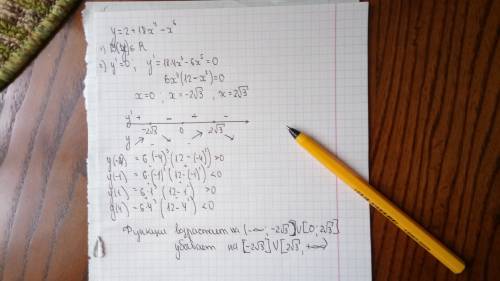 y = 2 + 18x⁴ - x⁶
1) D(y) ∈ R
2) y' = 0, y' = 18·4x³ - 6x⁵ = 0
6x³(12 - x²) = 0
x = 0 ; x = -2√3 , x = 2√3
y' + - + -
-2√3 0 2√3
y ↗ ↘ ↗ ↘
y(-4) = 6·(-4)³(12-(-4)²) > 0
y(-1) = 6·(-1)³(12-(-1)²) < 0
y(1) = 6·1³(12-1²) > 0
y(4) = 6·4³(12-4²) < 0
Функция возрастает на (-∞; -2√3]∪[0; 2√3]
убывает на [-2√3]∪[2√3; +∞)